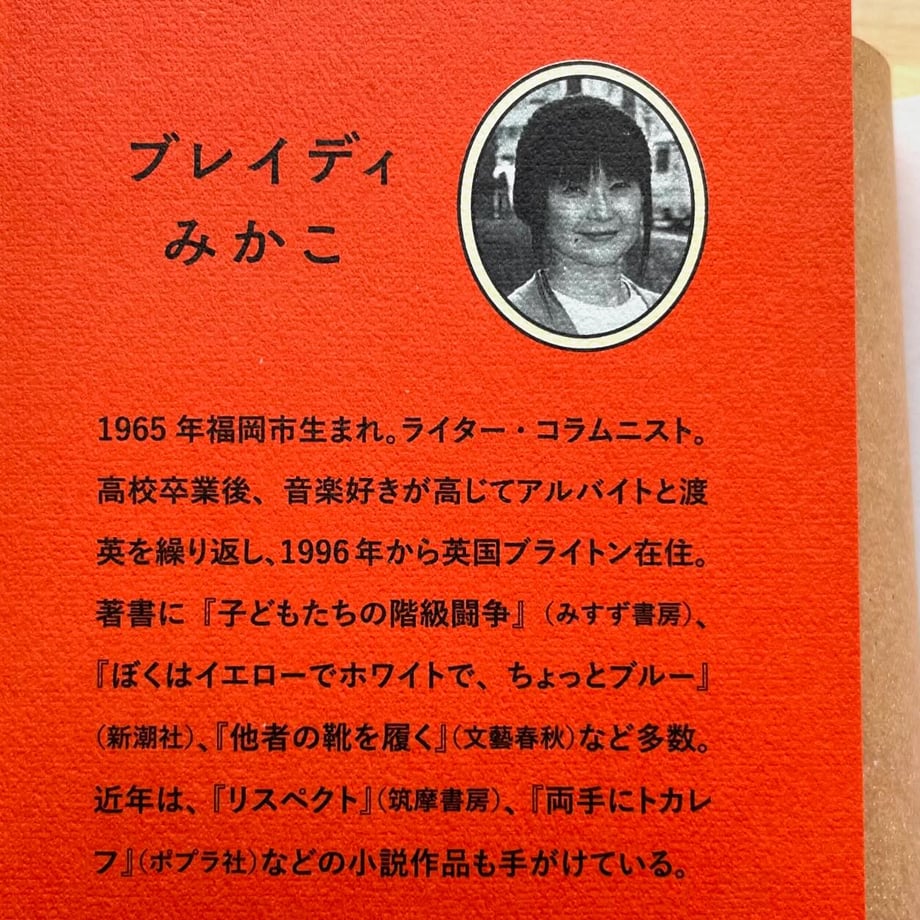 ブレイディ
みかこ
1965年福岡市生まれ。ライター・コラムニスト。
高校卒業後、音楽好きが高じてアルバイトと渡
英を繰り返し、1996年から英国ブライトン在住。
著書に『子どもたちの階級闘争』（みすず書房）、
『ぼくはイエローでホワイトで、ちょっとブルー』
（新潮社）、『他者の靴を履く』（文藝春秋）など多数。
近年は、『リスペクト』（筑摩書房）、『両手にトカレ
フ』（ポプラ社）などの小説作品も手がけている。